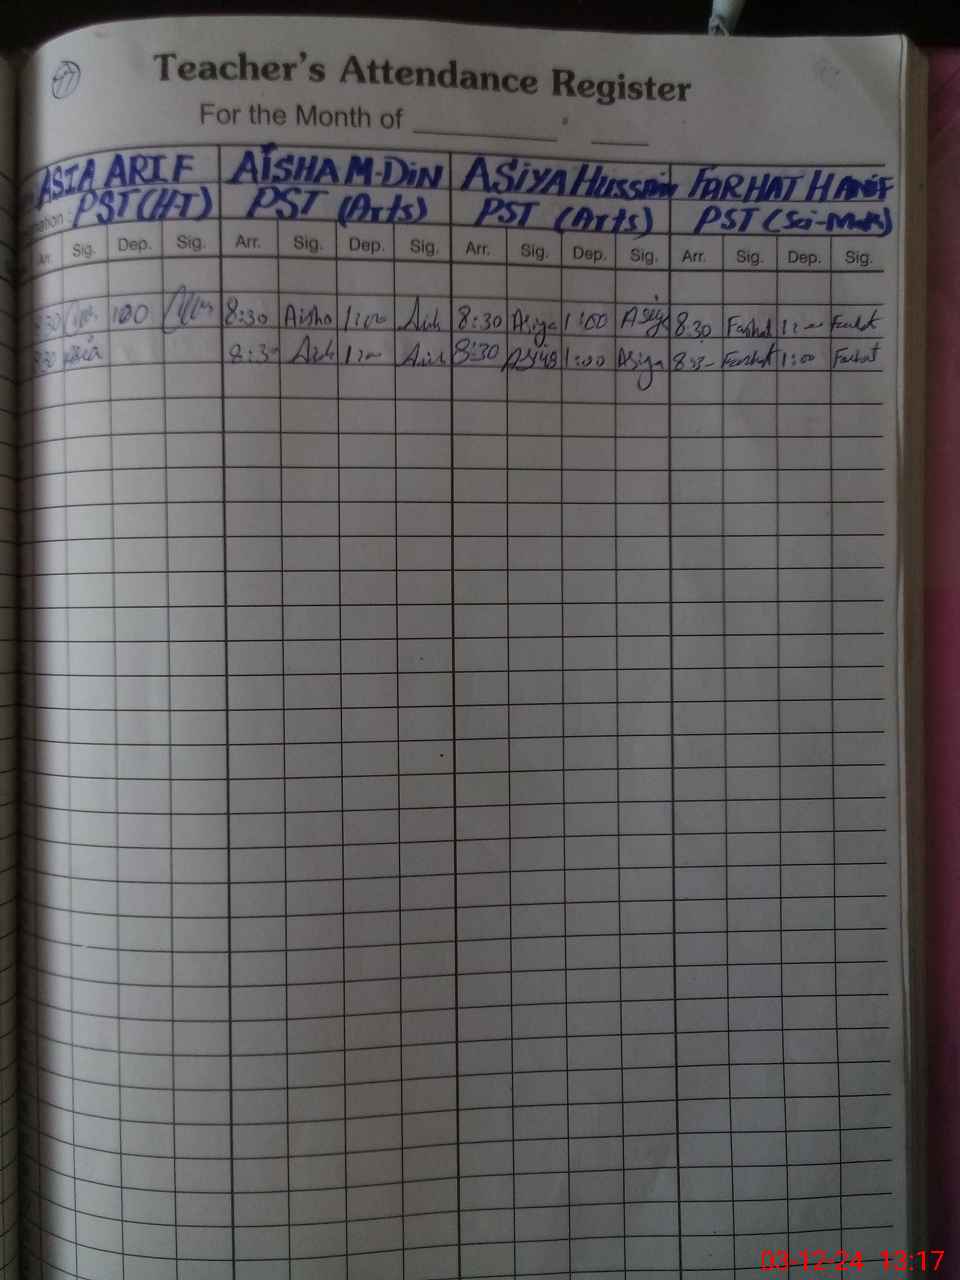 47
Teacher's Attendance Register
For the Month of
ASIA ARIF AISHA M-DIN ASIYA Hussain FARHAT HANIF
PST(HT) PST (Arts) PST (Arts) PST (Sci-Math)
Arr. Sig. Dep. Sig. Arr. Sig. Dep. Sig. Arr. Sig. Dep. Sig. Arr. Sig. Dep. Sig.
8:30 100 8:30 Aisha 1:00 8:30 Asiya 1:00 Asiya 8:30 Farhat 1:00 Farhat
8:30 Asia 8:30 1:00 8:30 Asiya 1:00 Asiya 8:30 Farhat 1:00 Farhat
03-12-24 13:17